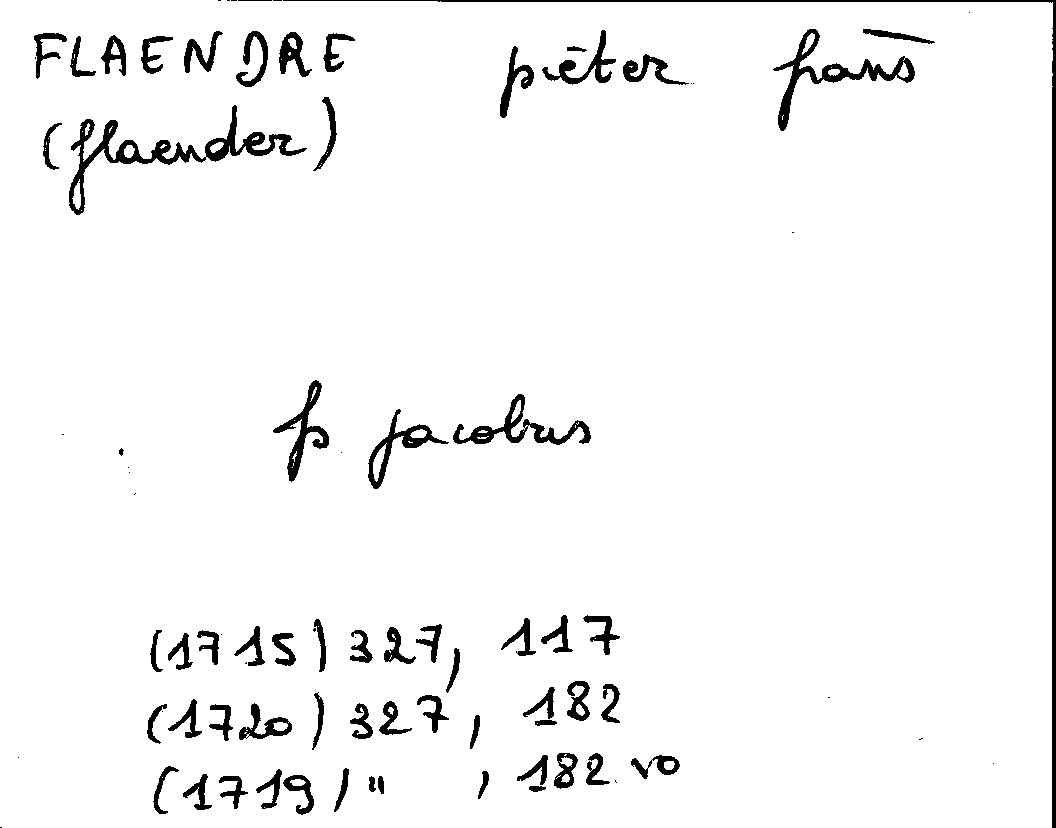 FLAENDRE pieter frans
(flaender)
fs jacobus
(1715) 327, 117
(1720) 327, 182
(1719) " , 182 vo